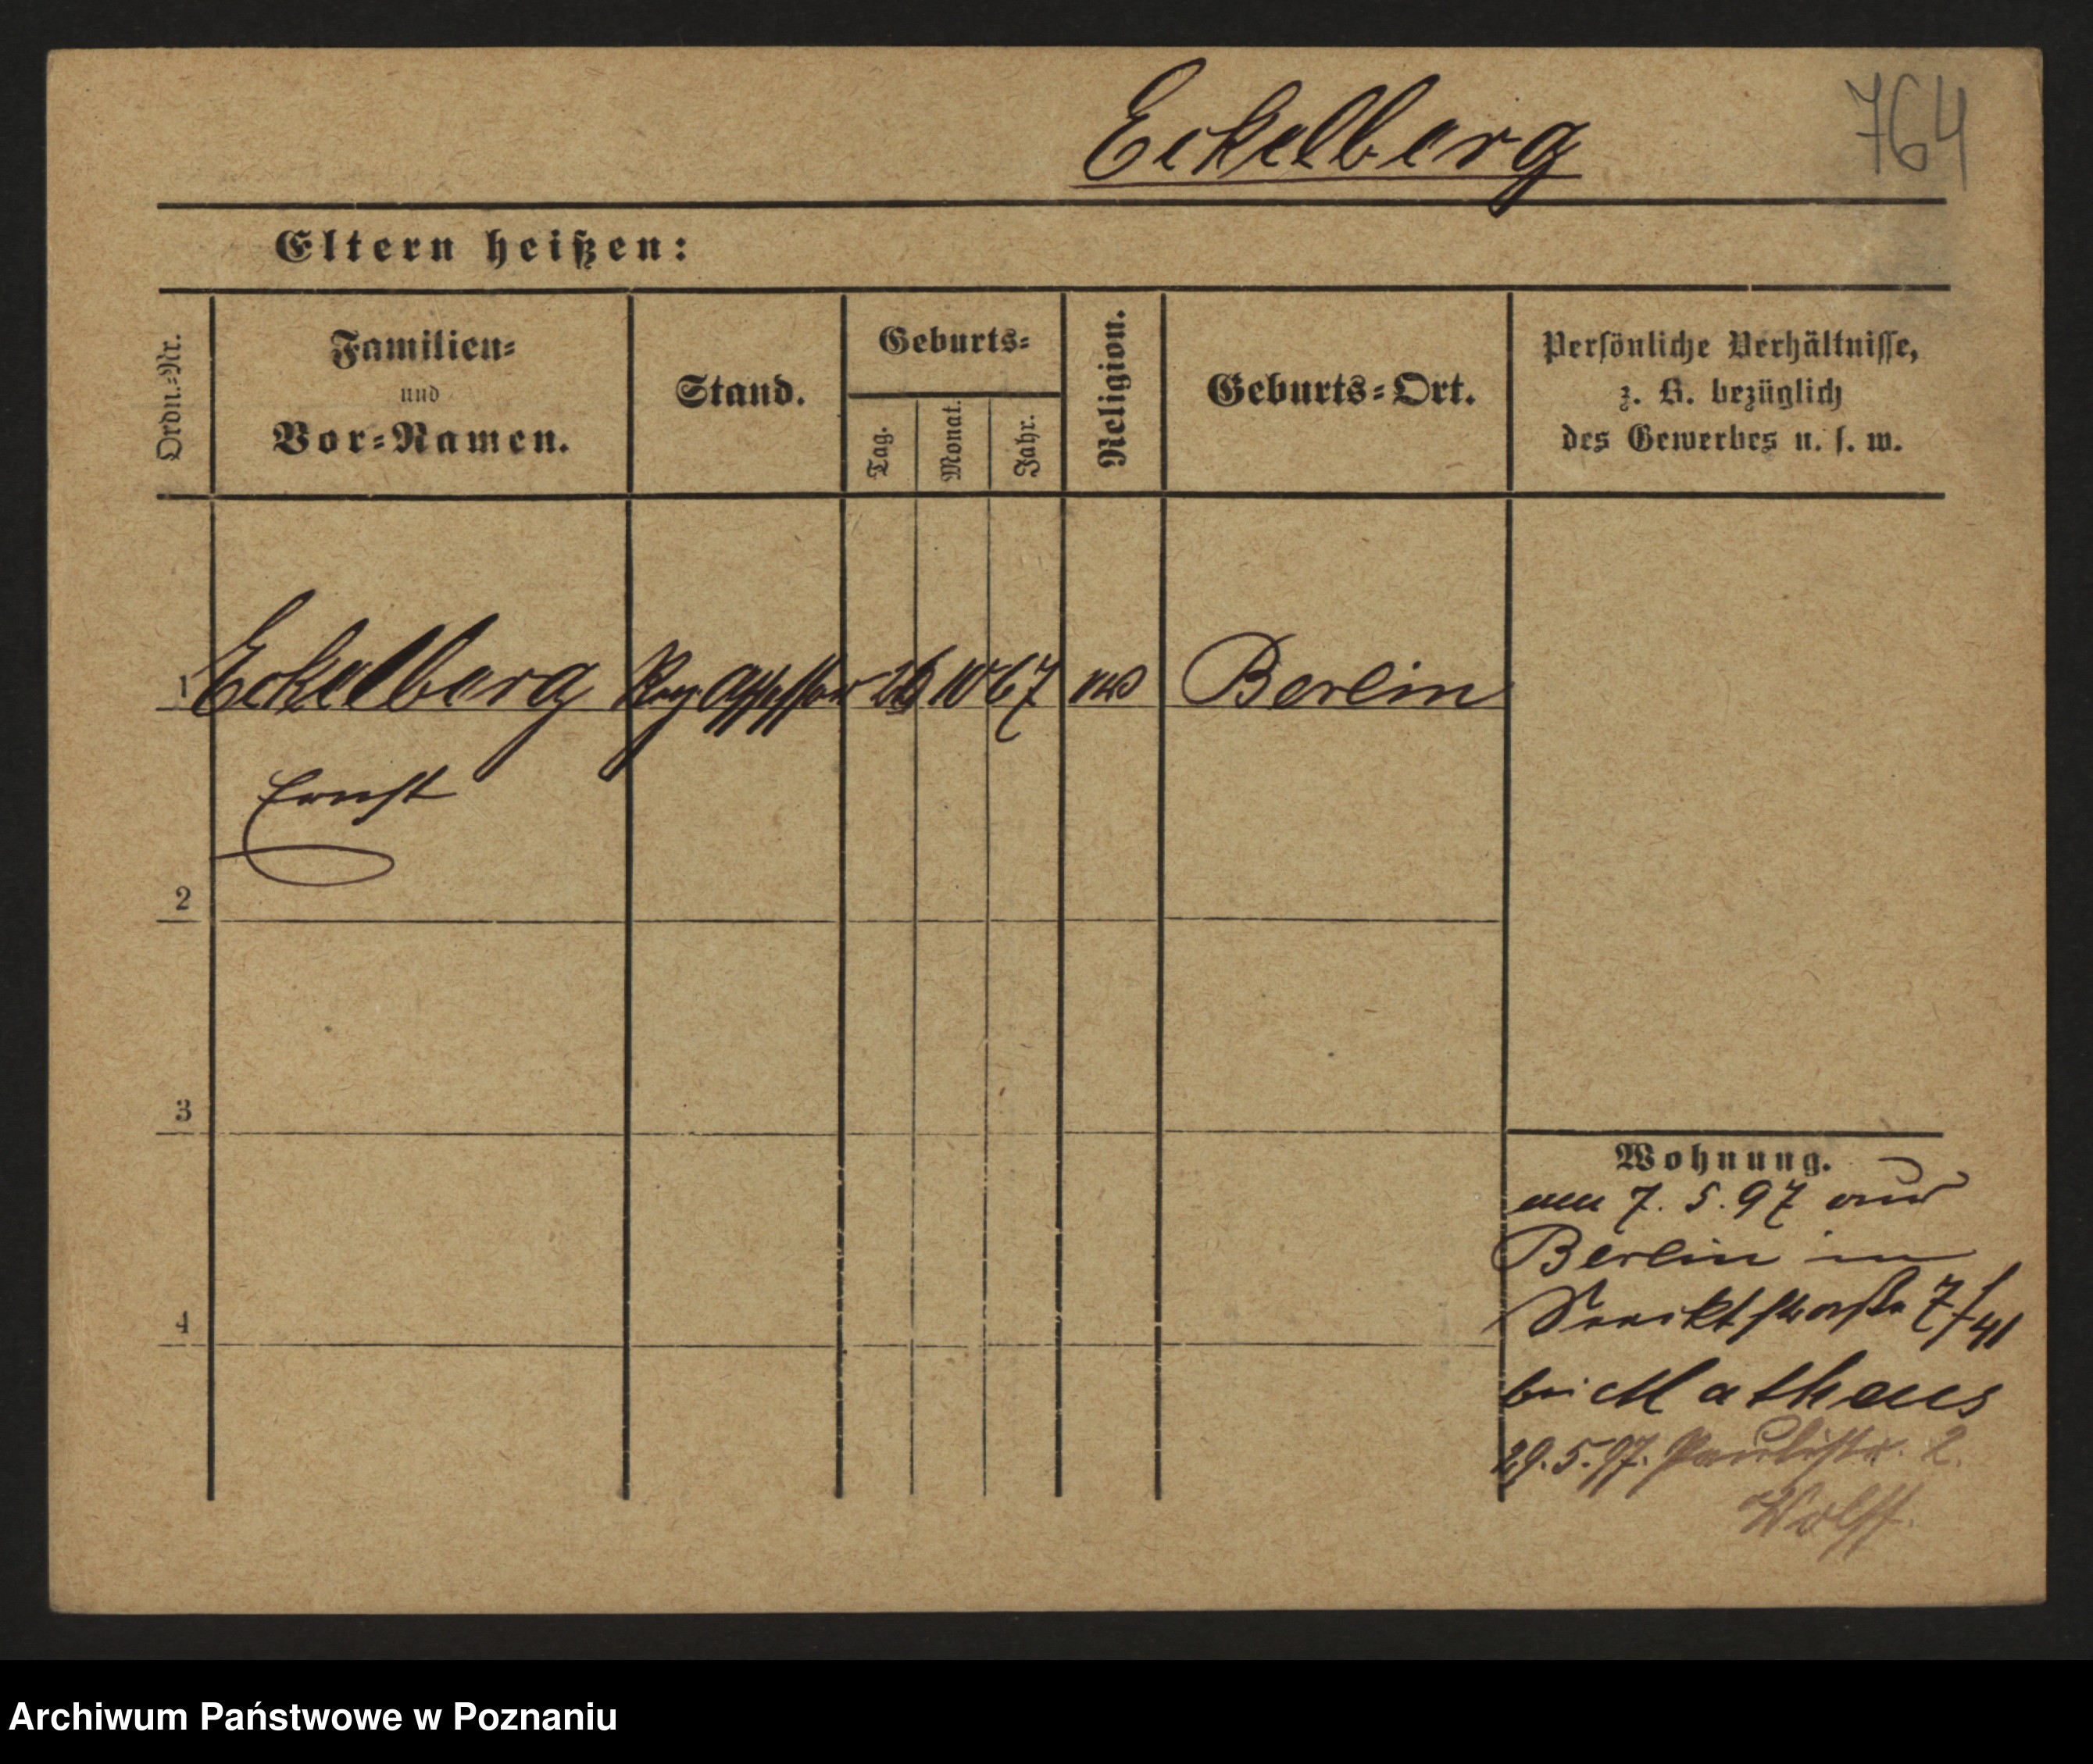 764
Eckelberg
Eltern heißen:
Ordn.-Nr.
Familien-
und
Vor-Namen.
Stand.
Geburts-
Tag.
Monat.
Jahr.
Religion.
Geburts-Ort.
Persönliche Verhältnisse,
z. B. bezüglich
des Gewerbes u. s. w.
1 Eckelberg Reg. Assessor 26 10 67 Berlin
Ernst
2
3
4
Wohnung.
am 7. 5. 97 aus
Berlin in
7/41
bei Mathaus
29. 5. 97. Paulistr. 2.
Wolff.
Archiwum Państwowe w Poznaniu